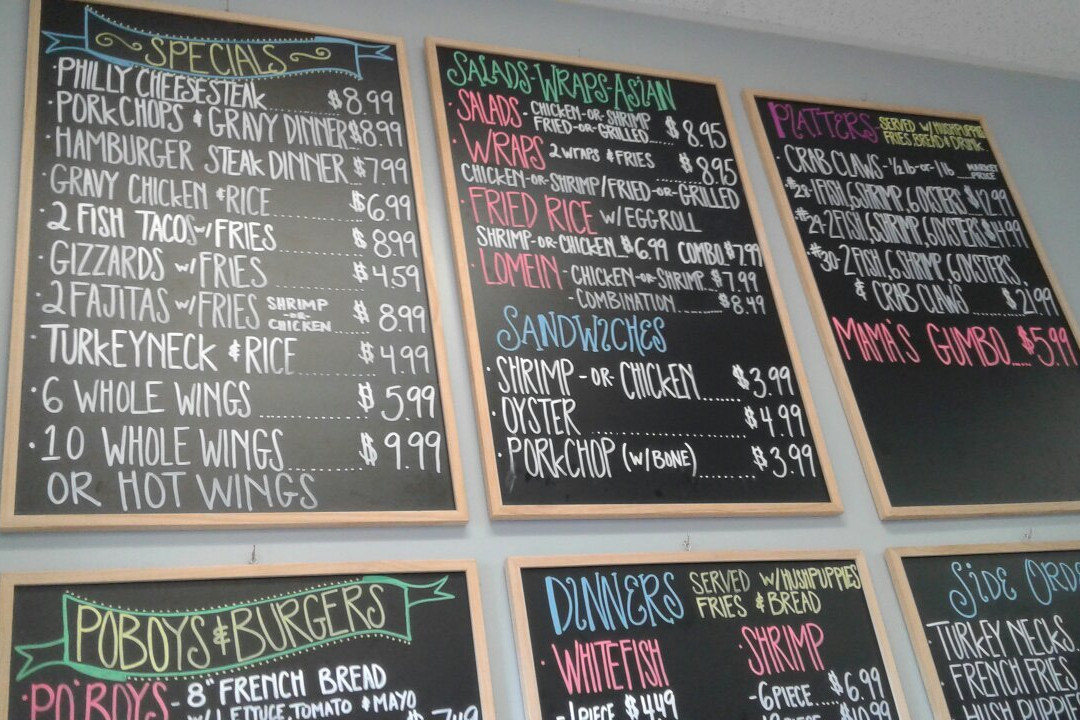 SPECIALS
·PHILLY CHEESESTEAK......$8.99
·PORKCHOPS & GRAVY DINNER $8.99
·HAMBURGER STEAK DINNER $7.99
·GRAVY CHICKEN & RICE......$6.99
·2 FISH TACOS w/ FRIES......$8.99
·GIZZARDS w/ FRIES......$4.59
·2 FAJITAS w/ FRIES SHRIMP -OR- CHICKEN......$8.99
·TURKEYNECK & RICE......$4.99
·6 WHOLE WINGS......$5.99
·10 WHOLE WINGS......$9.99
OR HOT WINGS
SALADS-WRAPS-ASIAN
·SALADS-CHICKEN-OR-SHRIMP
FRIED-OR-GRILLED......$8.95
·WRAPS 2 WRAPS & FRIES $8.95
CHICKEN-OR-SHRIMP/FRIED-OR-GRILLED
·FRIED RICE w/ EGGROLL
SHRIMP-OR-CHICKEN..$6.99 COMBO.$7.99
·LOMEIN-CHICKEN-OR-SHRIMP..$7.99
-COMBINATION......$8.49
SANDWICHES
·SHRIMP-OR-CHICKEN......$3.99
·OYSTER......$4.99
·PORKCHOP (w/BONE)......$3.99
PLATTERS-SERVED W/HUSHPUPPIE
FRIES, BREAD & DRINK
·CRAB CLAWS-1/2 lb-or-1 lb. MARKET PRICE
1 FISH, 6 SHRIMP, 6 OYSTERS $12.99
2 FISH, 6 SHRIMP, 6 OYSTERS $14.99
·#30-2 FISH, 6 SHRIMP, 6 OYSTERS,
& CRAB CLAWS......$21.99
MAMA'S GUMBO...$5.99
POBOYS & BURGERS
·PO'BOYS-8" FRENCH BREAD
W/ LETTUCE, TOMATO & MAYO
$7.49
DINNERS SERVED W/HUSHPUPPIES
FRIES & BREAD
·WHITEFISH
-1 PIECE $4.49
·SHRIMP
-6 PIECE......$6.99
$10.99
SIDE ORD
·TURKEY NECKS..
·FRENCH FRIES
HUSH PUPPIE